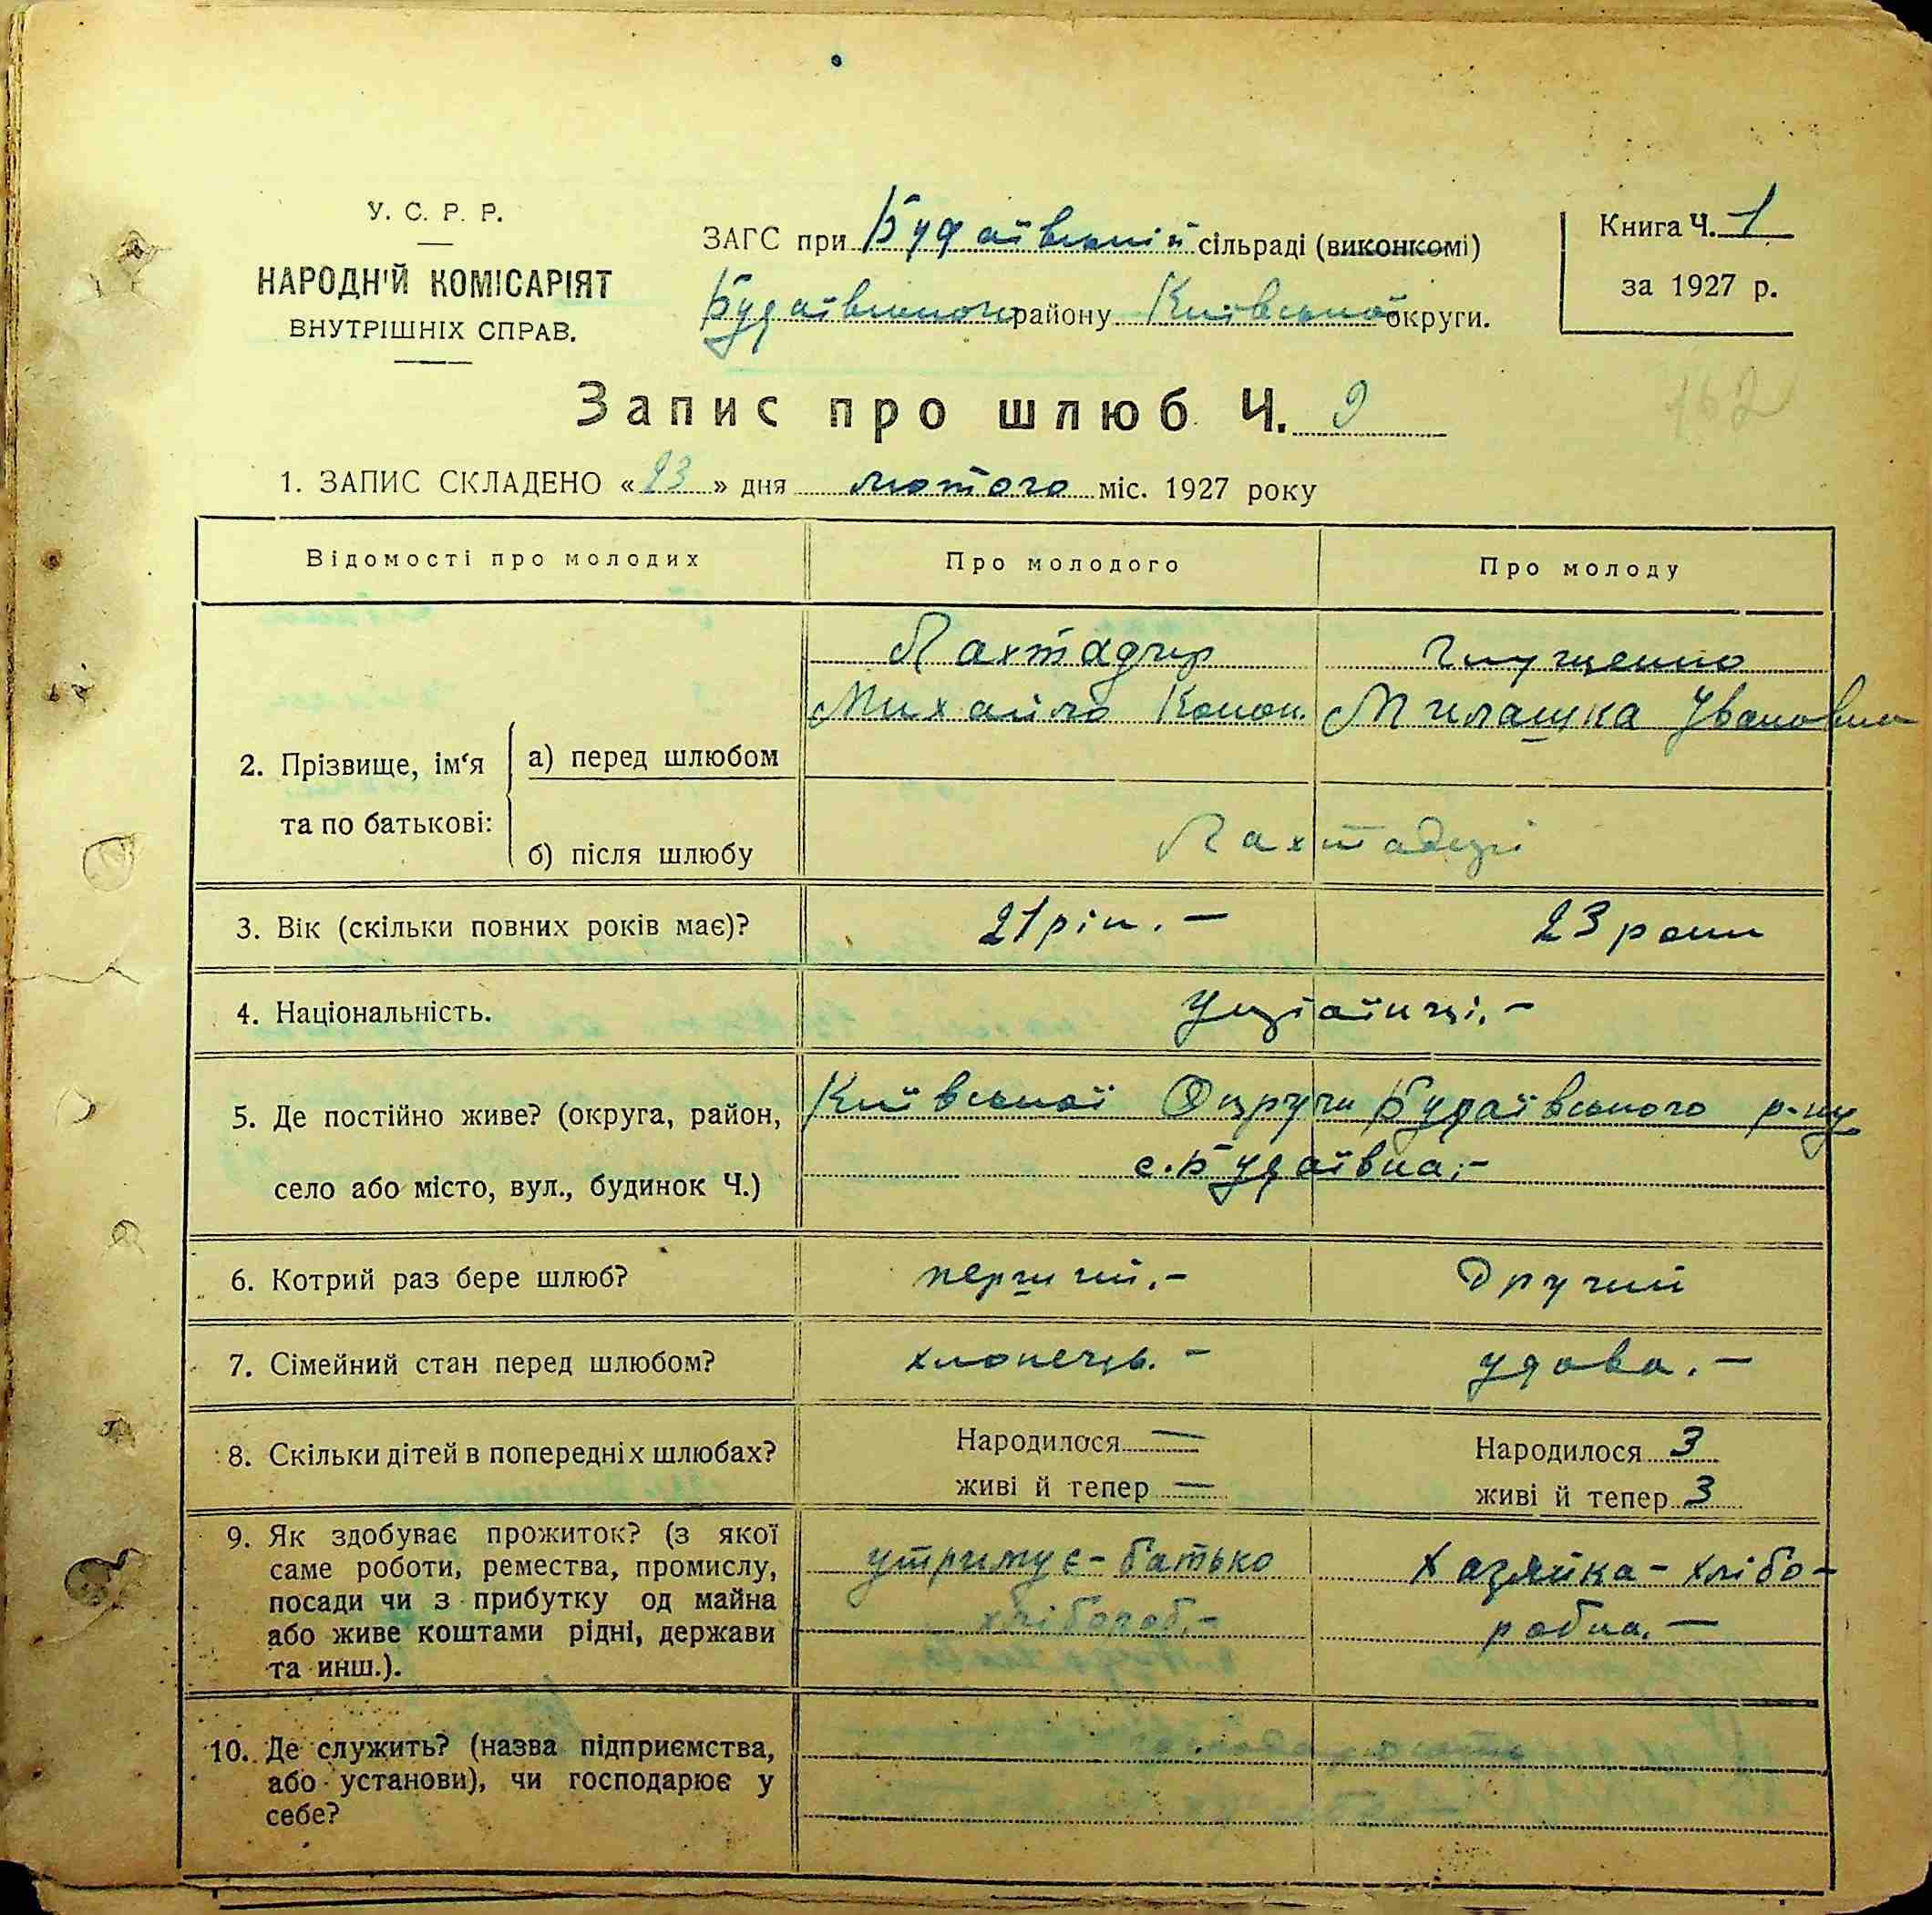 У. С. Р. Р.
НАРОДНІЙ КОМІСАРІЯТ
ВНУТРІШНІХ СПРАВ.
ЗАГС при Будаївській сільраді (виконкомі)
Будаївського району Київської округи.
Книга Ч. 1
за 1927 р.
162
Запис про шлюб Ч. 9
1. ЗАПИС СКЛАДЕНО «23» дня лютого міс. 1927 року
Відомості про молодих
Про молодого
Про молоду
2. Прізвище, ім‘я
та по батькові:
а) перед шлюбом
Лахтадир
Михайло Конон.
Глущенко
Милашка Івановна
б) після шлюбу
Лахтадирі
3. Вік (скільки повних років має)?
21 рік. –
23 роки
4. Національність.
Українці. –
5. Де постійно живе? (округа, район,
село або місто, вул., будинок Ч.)
Київської Округи Будаївського р-ну
с. Будаївка. –
6. Котрий раз бере шлюб?
перший. –
Другий
7. Сімейний стан перед шлюбом?
хлопець. –
удова. –
8. Скільки дітей в попередніх шлюбах?
Народилося —
живі й тепер —
Народилося 3
живі й тепер 3
9. Як здобуває прожиток? (з якої
саме роботи, ремества, промислу,
посади чи з прибутку од майна
або живе коштами рідні, держави
та инш.).
утримує – батько
хлібороб. –
Хазяйка – хлібо-
робка. –
10. Де служить? (назва підприємства,
або установи), чи господарює у
себе?